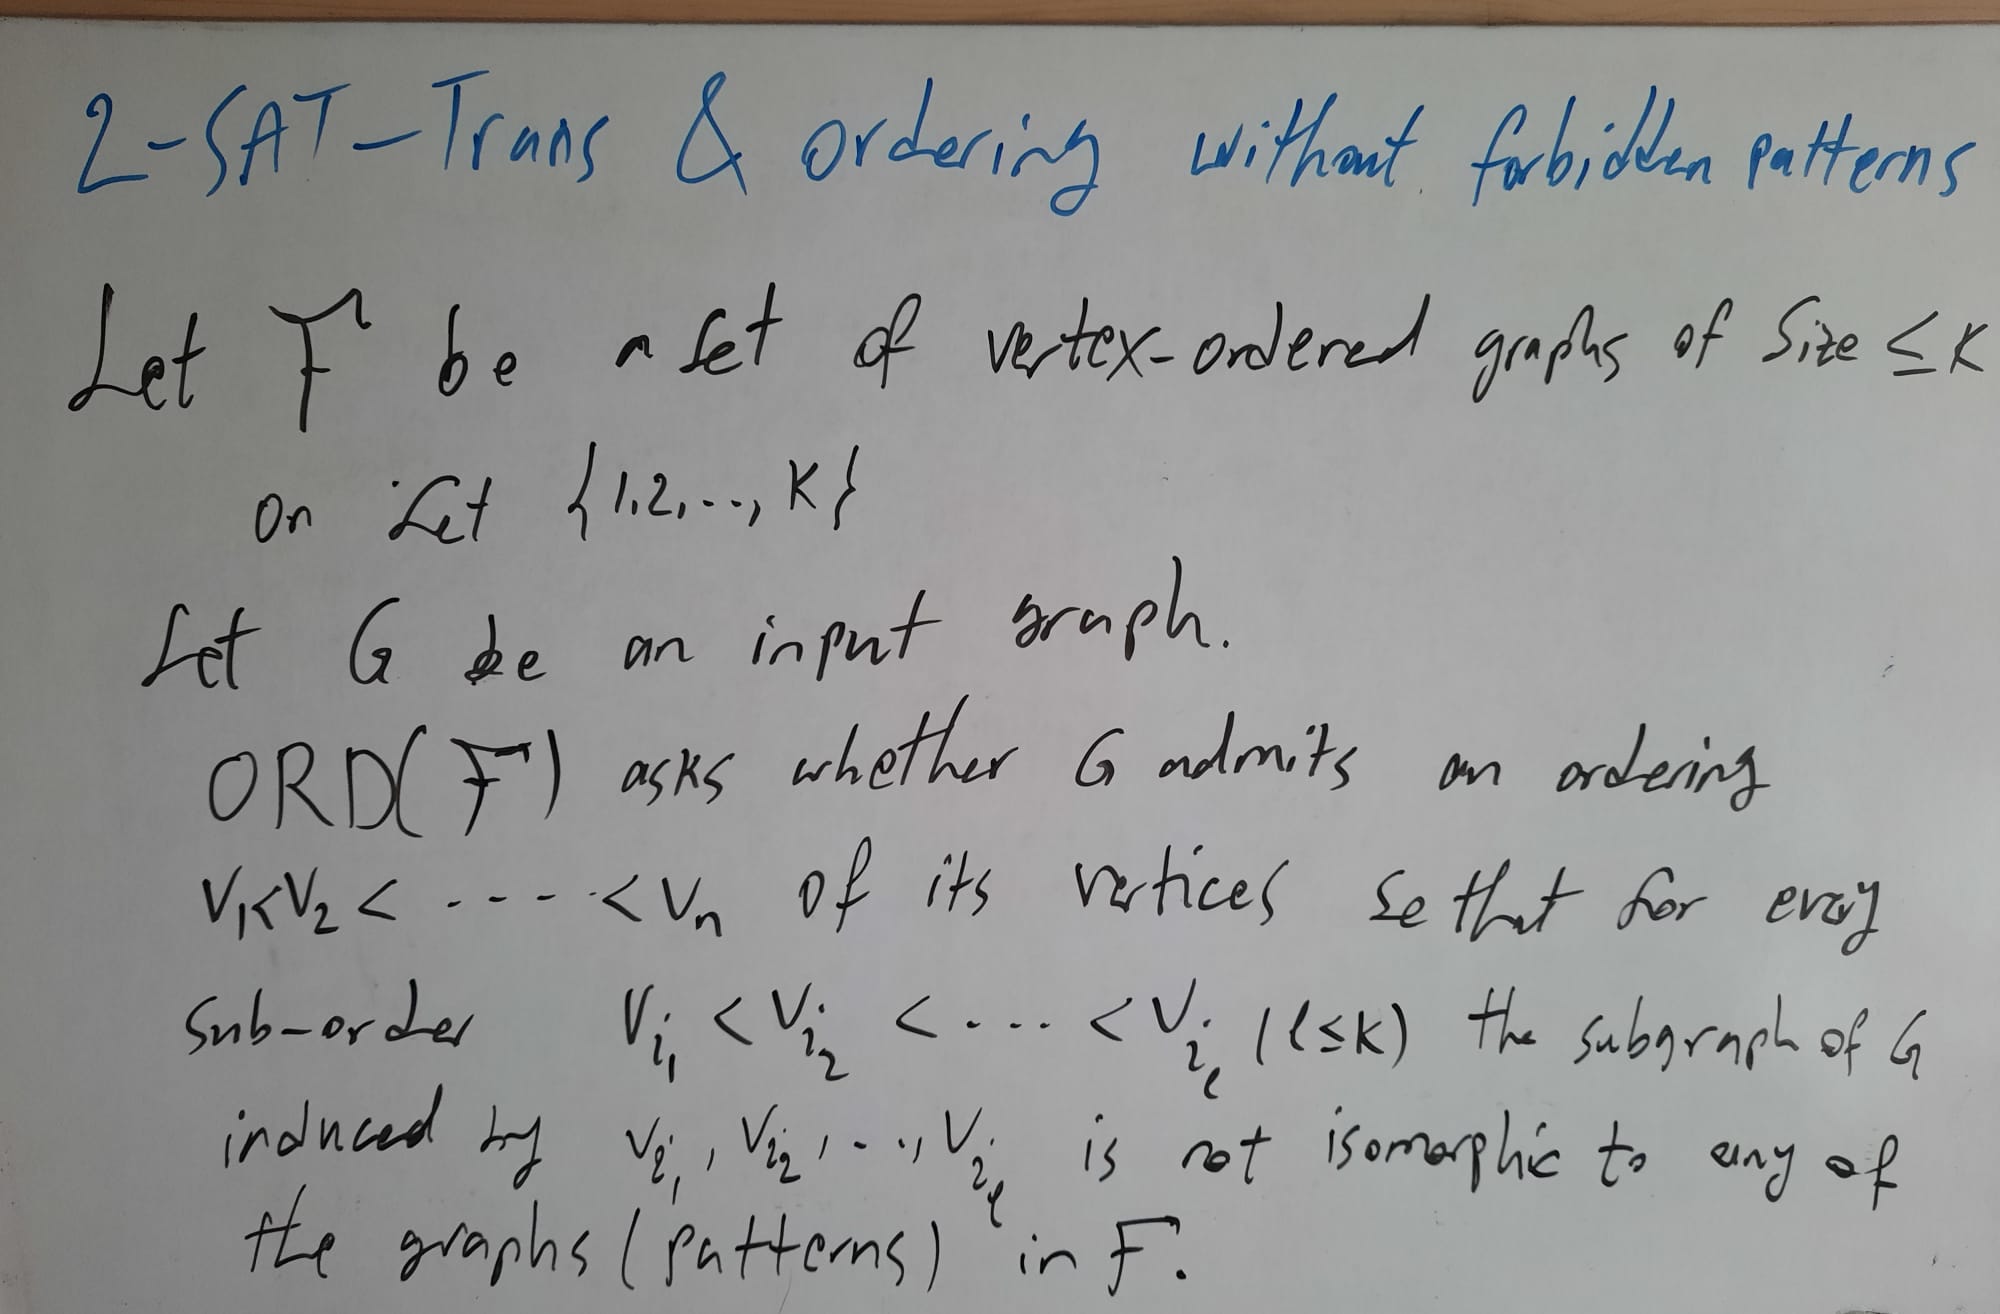 2-SAT-Trans & ordering without forbidden patterns
Let F be a set of vertex-ordered graphs of Size ≤ K
on set {1,2,..., K}
Let G be an input graph.
ORD(F) asks whether G admits an ordering
V₁<V₂< ---- <Vn of its vertices so that for every
Sub-order Vi₁ < Vi₂ < ---- < Viℓ (ℓ≤K) the subgraph of G
induced by Vi₁, Vi₂, ..., Viℓ is not isomorphic to any of
the graphs (patterns) in F.